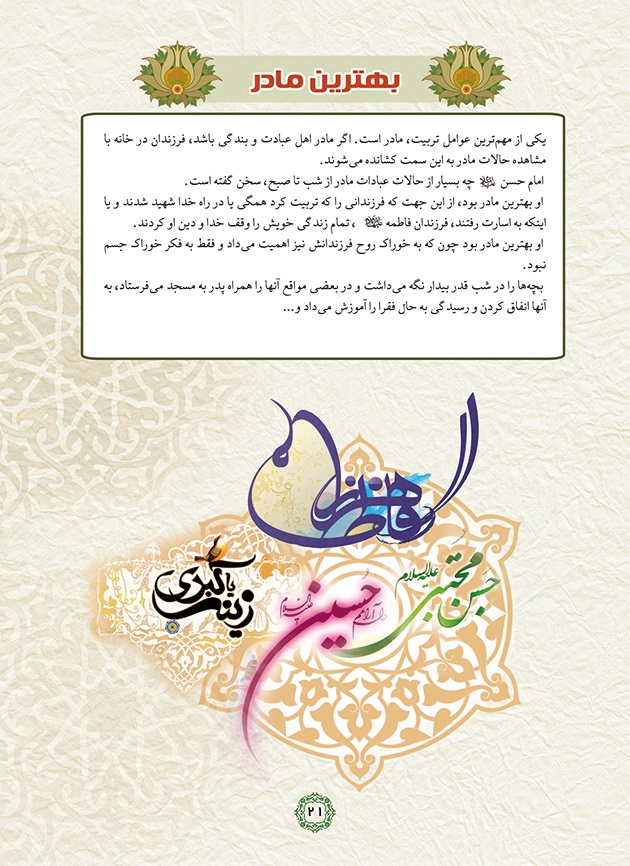 بهترین مادر
یکی از مهم‌ترین عوامل تربیت، مادر است. اگر مادر اهل عبادت و بندگی باشد، فرزندان در خانه با
مشاهده حالات مادر به این سمت کشانده می‌شوند.
امام حسن علیه السلام چه بسیار از حالات عبادات مادر از شب تا صبح، سخن گفته است.
او بهترین مادر بود، از این جهت که فرزندانی را که تربیت کرد همگی یا در راه خدا شهید شدند و یا
اینکه به اسارت رفتند، فرزندان فاطمه ، تمام زندگی خویش را وقف خدا و دین او کردند.
او بهترین مادر بود چون که به خوراک روح فرزندانش نیز اهمیت می‌داد و فقط به فکر خوراک جسم
نبود.
بچه‌ها را در شب قدر بیدار نگه می‌داشت و در بعضی مواقع آنها را همراه پدر به مسجد می‌فرستاد، به
آنها انفاق کردن و رسیدگی به حال فقرا را آموزش می‌داد و...
فاطمه الزهرا
حسن مجتبی علیه السلام
حسین علیه السلام
یا زینب کبری
۲۱